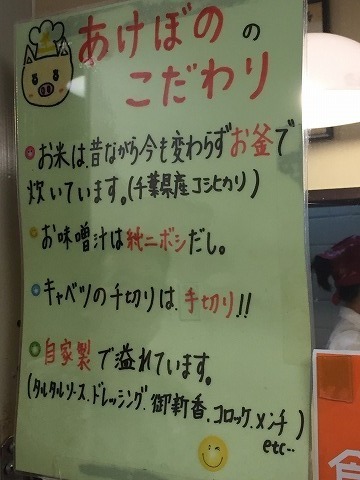 あけぼのの
こだわり
お米は、昔ながら今も変わらずお釜で
炊いています。(千葉県産コシヒカリ)
お味噌汁は純ニボシだし。
キャベツの千切りは、手切り!!
自家製で溢れています。
(タルタルソース、ドレッシング、御新香、コロッケ、メンチ
etc…)